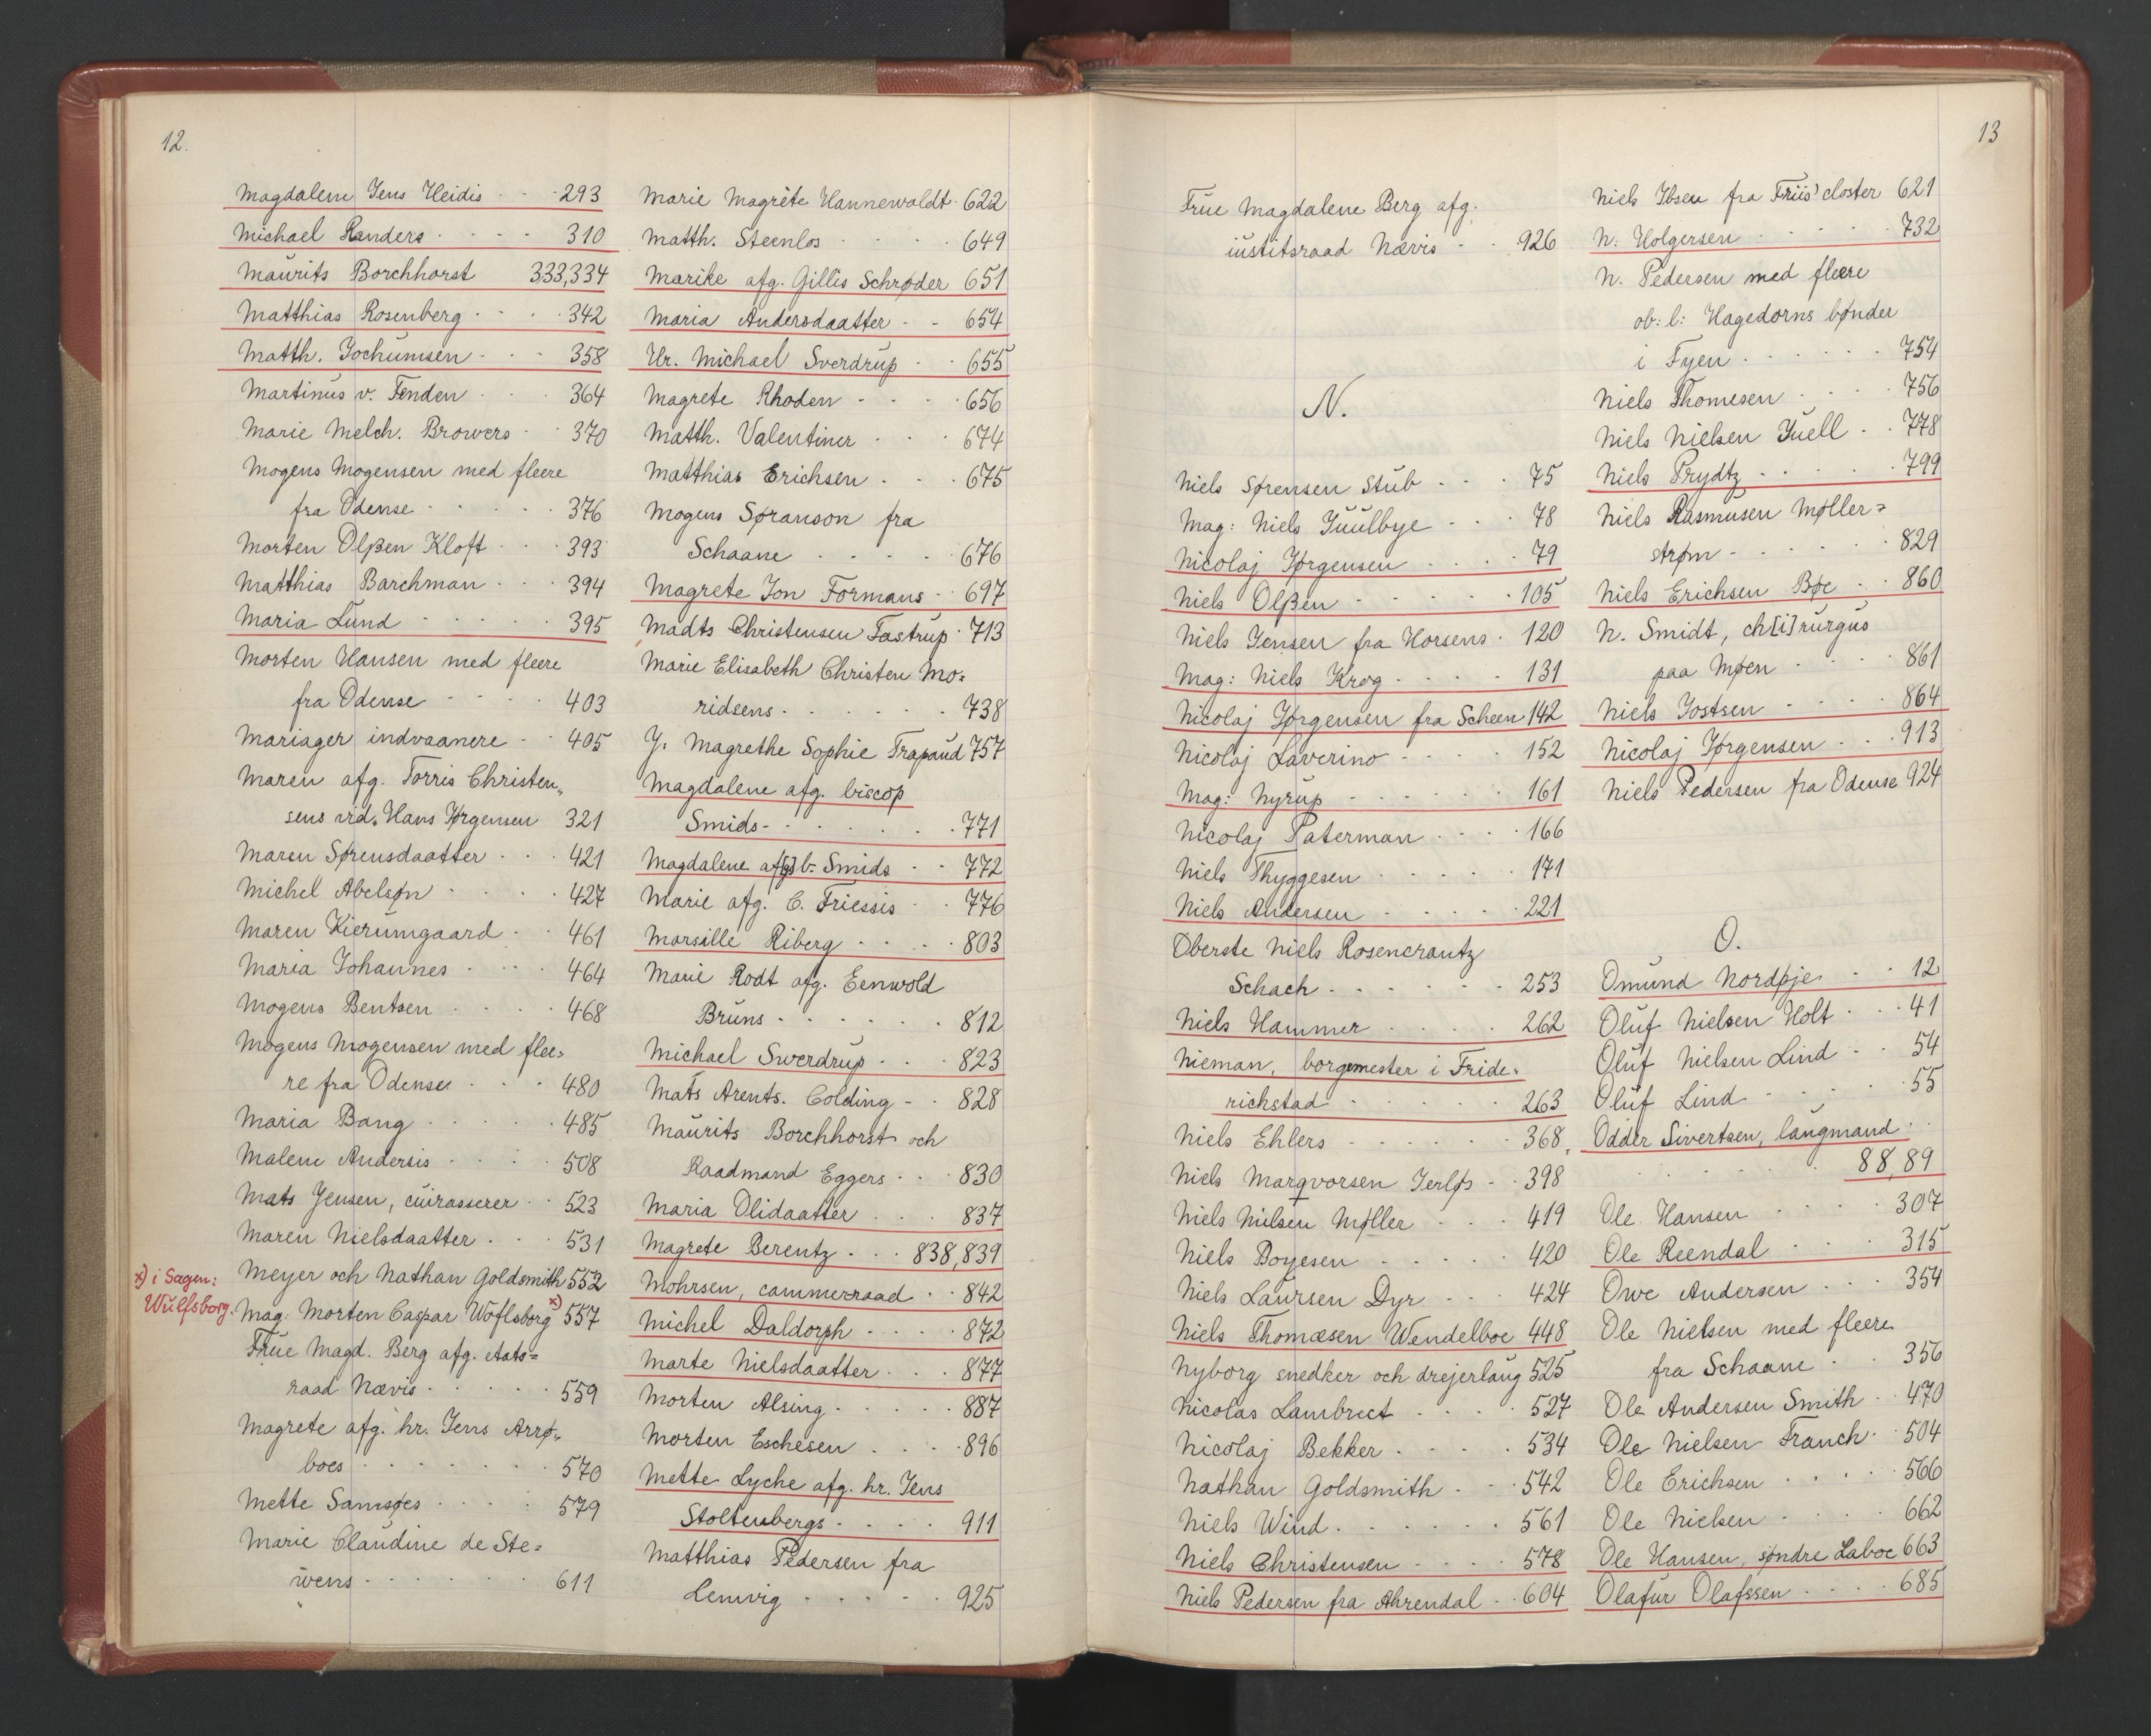 12.
Magdalene Jens Heidis - - - 293
Michael Randers - - - - 310
Maurits Borchhorst 333,334
Matthias Rosenberg - - - - 342
Matth. Jochumsen - - - 358
Martinus v. Fenden - - - 364
Marie Melch. Browers - - 370
Mogens Mogensen med fleere
fra Odense - - - - - 376
Morten Olßen Kloft - - - 393
Matthias Barchman - - - 394
Maria Lund - - - - - 395
Morten Hansen med fleere
fra Odense - - - - 403
Mariager indvaanere - - 405
Maren afg. Torris Christen„
sens vid. Hans Jørgensen 321
Maren Sørensdaatter - - - 421
Michel Abelsøn - - - - 427
Maren Kierumgaard - - 461
Maria Johannes - - - - 464
Mogens Bentsen - - - - 468
Mogens Mogensen med flee=
re fra Odense - - - 480
Maria Bang - - - - - 485
Malene Andersis - - - - 508
Mats Jensen, cuirasserer - - 523
Maren Nielsdaatter - - - 531
Meyer och Nathan Goldsmith 552
x) i Sagen:
Wulfsborg.
Mag: Morten Caspar Woflsborg x) 557
Frue Magd. Berg afg. etats=
raad Nævis - - - - - 559
Magrete afg. hr. Jens Arrø„
boes - - - - - - 570
Mette Samsøes - - - - 579
Marie Claudine de Ste=
wens - - - - - - 611
Marie Magrete Hannewaldt - 622
Matth. Steenlos - - - - 649
Marike afg. Gillis Schrøder 651
Maria Andersdaatter - - 654
Hr. Michael Sverdrup - - 655
Magrete Rhoden - - - - 656
Matth. Valentiner - - - 674
Matthias Erichsen - - - 675
Mogens Søranson fra
Schaane - - - - - 676
Magrete Jon Formans - - 697
Madts Christensen Tastrup - 713
Marie Elisabeth Christen Mo=
ridsens - - - - - - 738
J. Magrethe Sophie Trapaud 757
Magdalene afg. biscop
Smids - - - - - - 771
Magdalene af[g] b. Smids - - 772
Marie afg. C. Friessis - - 776
Marsille Riberg - - - - 803
Marie Rodt afg. Eenwold
Bruns - - - - - - 812
Michael Swerdrup - - - 823
Mats Arents. Colding - - 828
Maurits Borchhorst och
Raadmand Eggers - - - 830
Maria Olidaatter - - - 837
Magrete Berentz - - - 838,839
Mohrsen, cammerraad - - 842
Michel Daldorph - - - - 872
Marte Nielsdaatter - - - 877
Morten Alsing - - - - - 887
Morten Eschesen - - - - 896
Mette Lyche afg. hr. Jens
Stoltenbergs - - - - 911
Matthias Pedersen fra
Lemvig - - - - - 925
13
Frue Magdalene Berg afg.
iustitsraad Nævis - - 926
N.
Niels Sørensen Stub - - - 75
Mag: Niels Juulbye - - - 78
Nicolaj Jørgensen - - - - 79
Niels Olßen - - - - - 105
Niels Jensen fra Horsens - 120
Mag: Niels Krog - - - - 131
Nicolaj Jørgensen fra Scheen 142
Nicolaj Laverino - - - - 152
Mag: Nyrup - - - - - 161
Nicolaj Paterman - - - - 166
Niels Thyggesen - - - - - 171
Niels Andersen - - - - - 221
Oberste Niels Rosencrantz
Schach - - - - - - 253
Niels Hammer - - - - 262
Nieman, borgemester i Fride=
richstad - - - - - - 263
Niels Ehlers - - - - - - 368
Niels Marqvorsen Jerløs - - 398
Niels Nielsen Møller - - - 419
Niels Boyesen - - - - - 420
Niels Laursen Dyr - - - 424
Niels Thomæsen Wendelboe 448
Nyborg snedker och drejerlaug 525
Nicolas Lambrect - - - - 527
Nicolaj Bekker - - - - 534
Nathan Goldsmith - - 542
Niels Wind - - - - - - 561
Niels Christensen - - - - 578
Niels Pedersen fra Ahrendal - - 604
Niels Ibsen fra Friis' closter 621
N. Holgersen - - - - - 732
N. Pedersen med fleere
ob: l: Hagedorns bønder
i Fyen - - - - - - 754
Niels Thomesen - - - - 756
Niels Nielsen Juell - - 778
Niels Prydtz - - - - - 799
Niels Rasmusen Møller=
strøm - - - - - - 829
Niels Erichsen Bøe - - 860
N. Smidt, ch[i]rurgus
paa Møen - - - - 861
Niels Jostsen - - - - - 864
Nicolaj Jørgensen - - - 913
Niels Pedersen fra Odense 924
O.
Omund Nordøje - - - 12
Oluf Nielsen Holt - - - 41
Oluf Nielsen Lind - - 54
Oluf Lind - - - - - 55
Odder Sivertsen, laugmand - -
- - - - - - 88,89
Ole Hansen - - - - 307
Ole Reendal - - - - 315
Owe Andersen - - - 354
Ole Nielsen med fleere
fra Schaane - - 356
Ole Andersen Smith - - 470
Ole Nielsen Franch - - 504
Ole Erichsen - - - - 566
Ole Nielsen - - - - 662
Ole Hansen, søndre Laboe 663
Olafur Olafssen - - - - 685